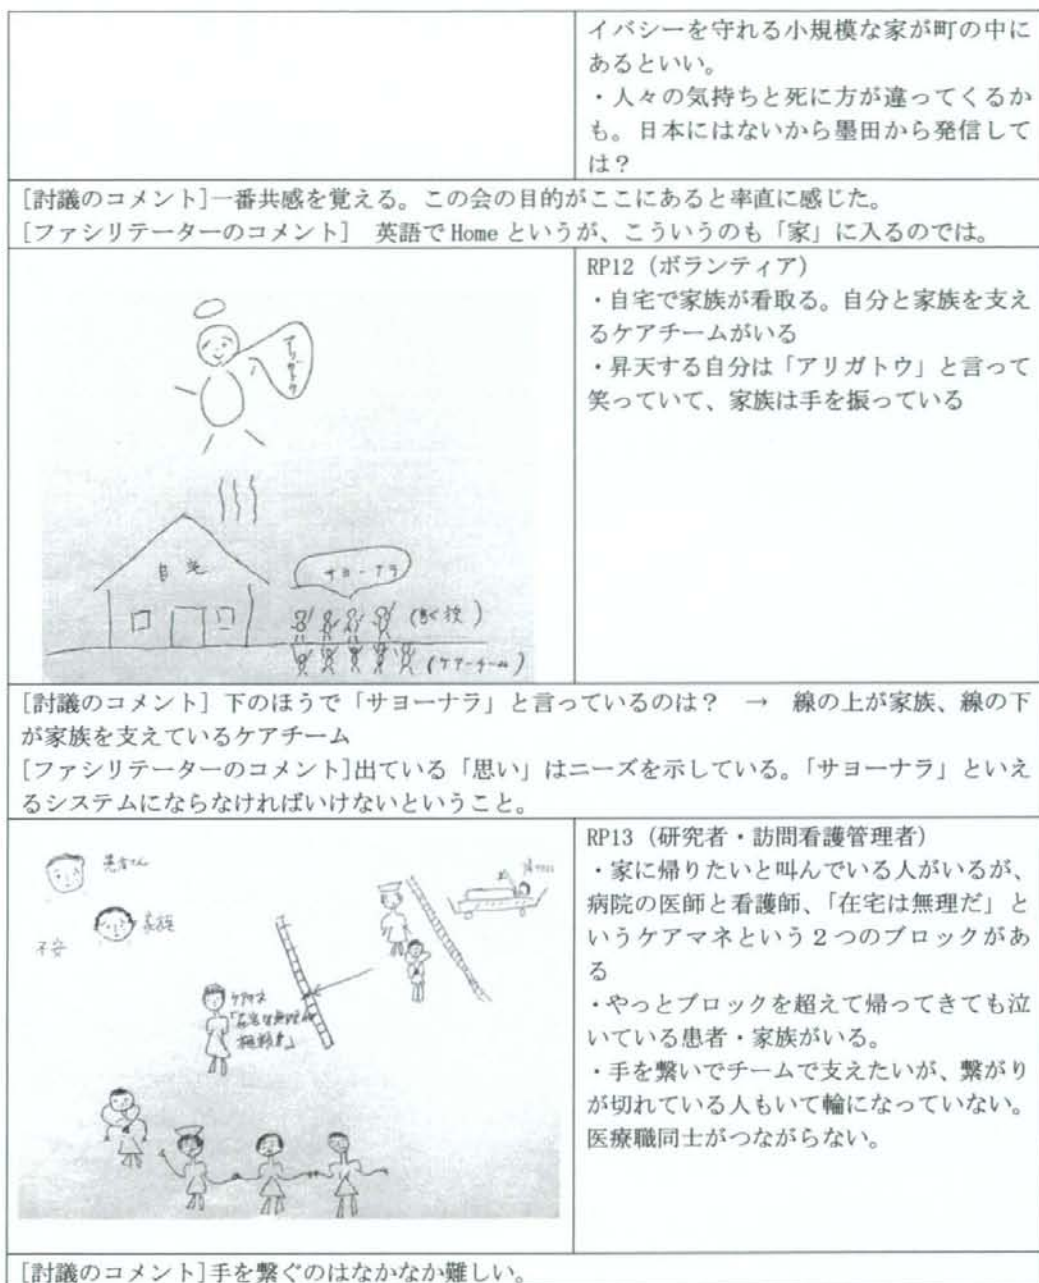 イバシーを守れる小規模な家が町の中に
あるといい。
・人々の気持ちと死に方が違ってくるか
も。日本にはないから墨田から発信して
は？
[討議のコメント]一番共感を覚える。この会の目的がここにあると率直に感じた。
[ファシリテーターのコメント]　英語で Home というが、こういうのも「家」に入るのでは。
アリガトウ
自宅
サヨーナラ
(家族)
(ケアーチーム)
RP12（ボランティア）
・自宅で家族が看取る。自分と家族を支え
るケアチームがいる
・昇天する自分は「アリガトウ」と言って
笑っていて、家族は手を振っている
[討議のコメント] 下のほうで「サヨーナラ」と言っているのは？　→　線の上が家族、線の下
が家族を支えているケアチーム
[ファシリテーターのコメント]出ている「思い」はニーズを示している。「サヨーナラ」といえ
るシステムにならなければいけないということ。
患者さん
家族
不安
ケアマネ
「在宅は無理
RP13（研究者・訪問看護管理者）
・家に帰りたいと叫んでいる人がいるが、
病院の医師と看護師、「在宅は無理だ」と
いうケアマネという２つのブロックがあ
る
・やっとブロックを超えて帰ってきても泣
いている患者・家族がいる。
・手を繋いでチームで支えたいが、繋がり
が切れている人もいて輪になっていない。
医療職同士がつながらない。
[討議のコメント]手を繋ぐのはなかなか難しい。